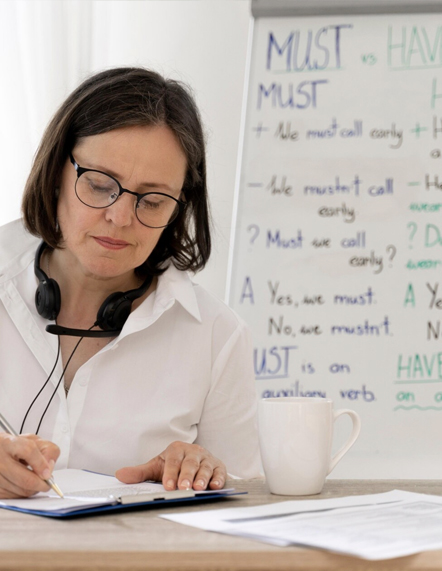 MUST vs HAV
MUST H
+ We must call early + H
- We mustn't call - H
early wear
? Must we call ? D
early? wear
A Yes, we must. A Ye
No, we mustn't. N
UST is an HAVE
auxiliary verb. an a